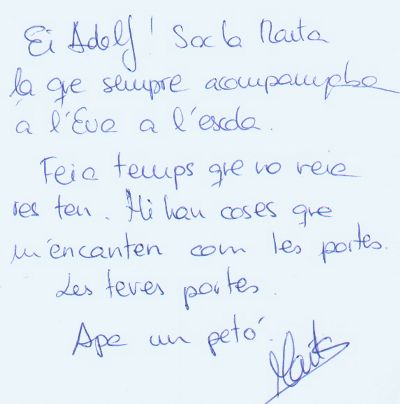 Ei Adolf! Soc la Marta
la que sempre acompanyaba
a l'Eva a l'escola.
Feia temps que no veia
res teu. Hi han coses que
m'encanten com les portes.
Les teves portes.
Apa un petó.
Marta